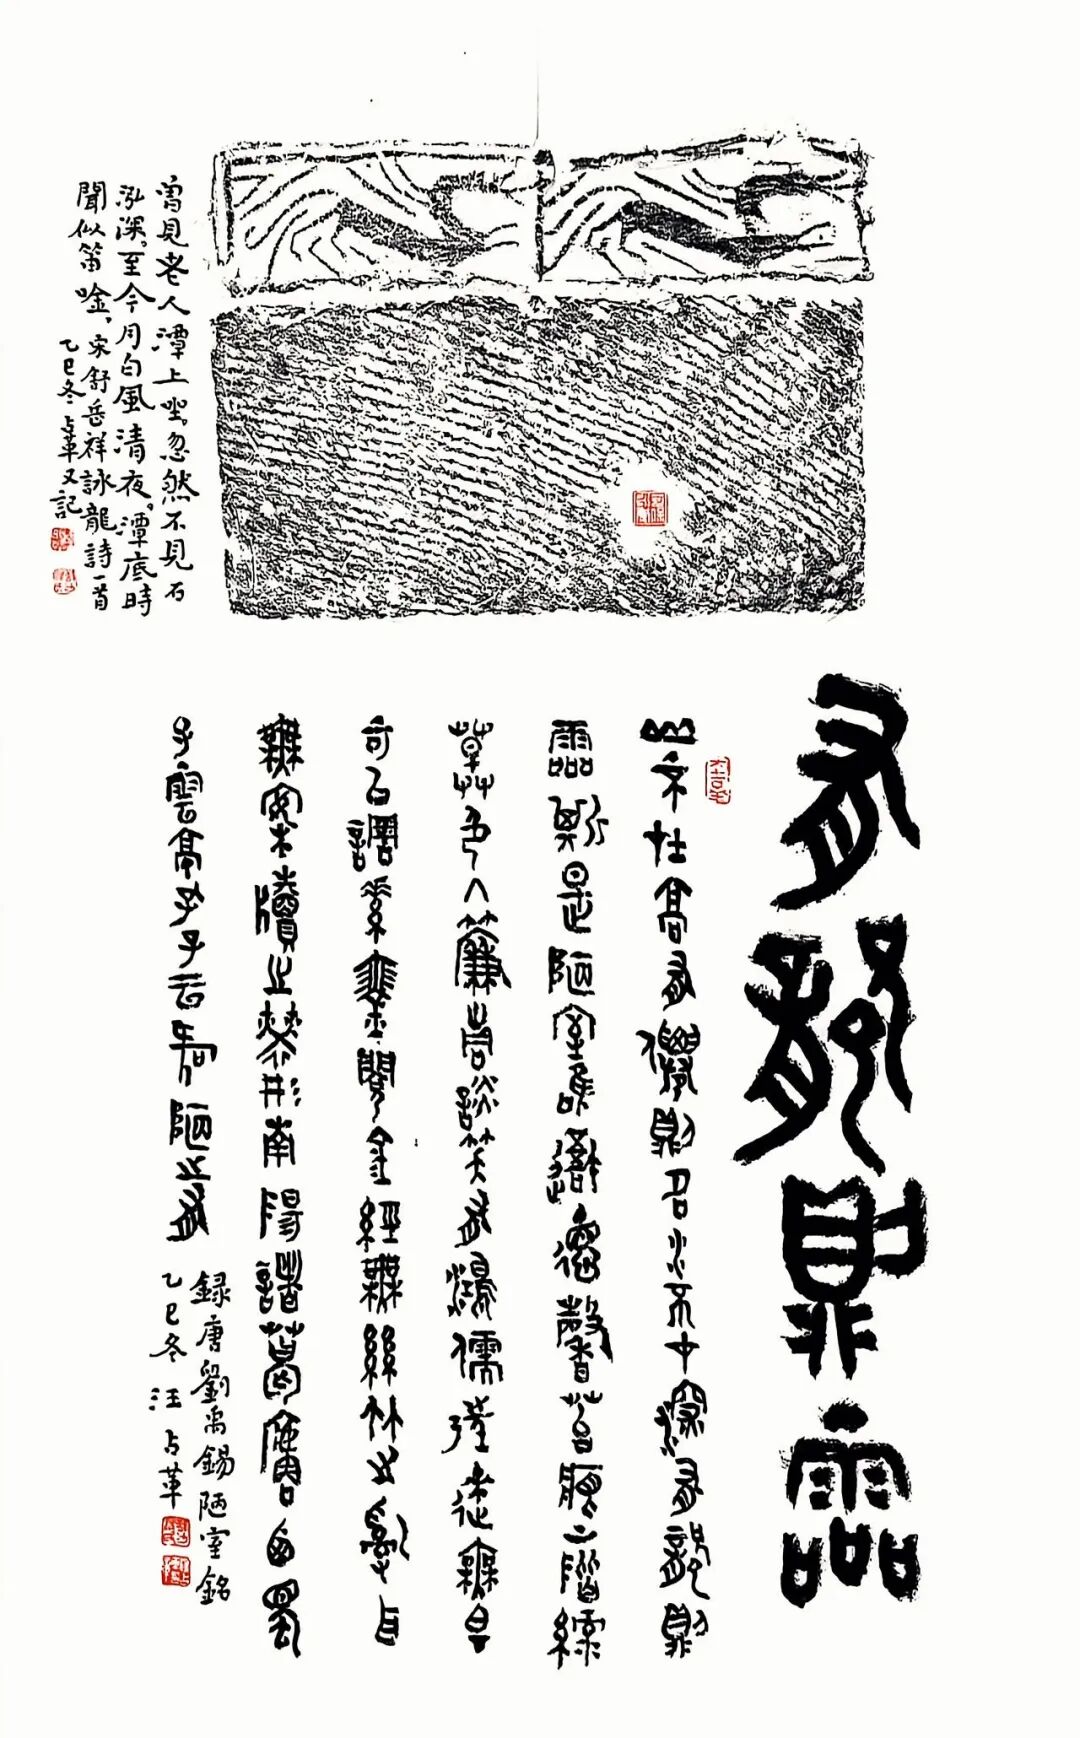 曾見老人潭上坐忽然不見石
泓深至今月白風清夜潭底時
聞似笛唫宋舒岳祥詠龍詩一首
乙巳冬占革又記
有龍則靈
山不在高有僊則名水不在深有龍則
靈斯是陋室唯吾德馨苔痕上階綠
草色入簾青談笑有鴻儒往來無白丁
可以調素琴閱金經無絲竹之亂耳
無案牘之勞形南陽諸葛廬西蜀
子雲亭孔子云何陋之有
錄唐劉禹錫陋室銘
乙巳冬汪占革